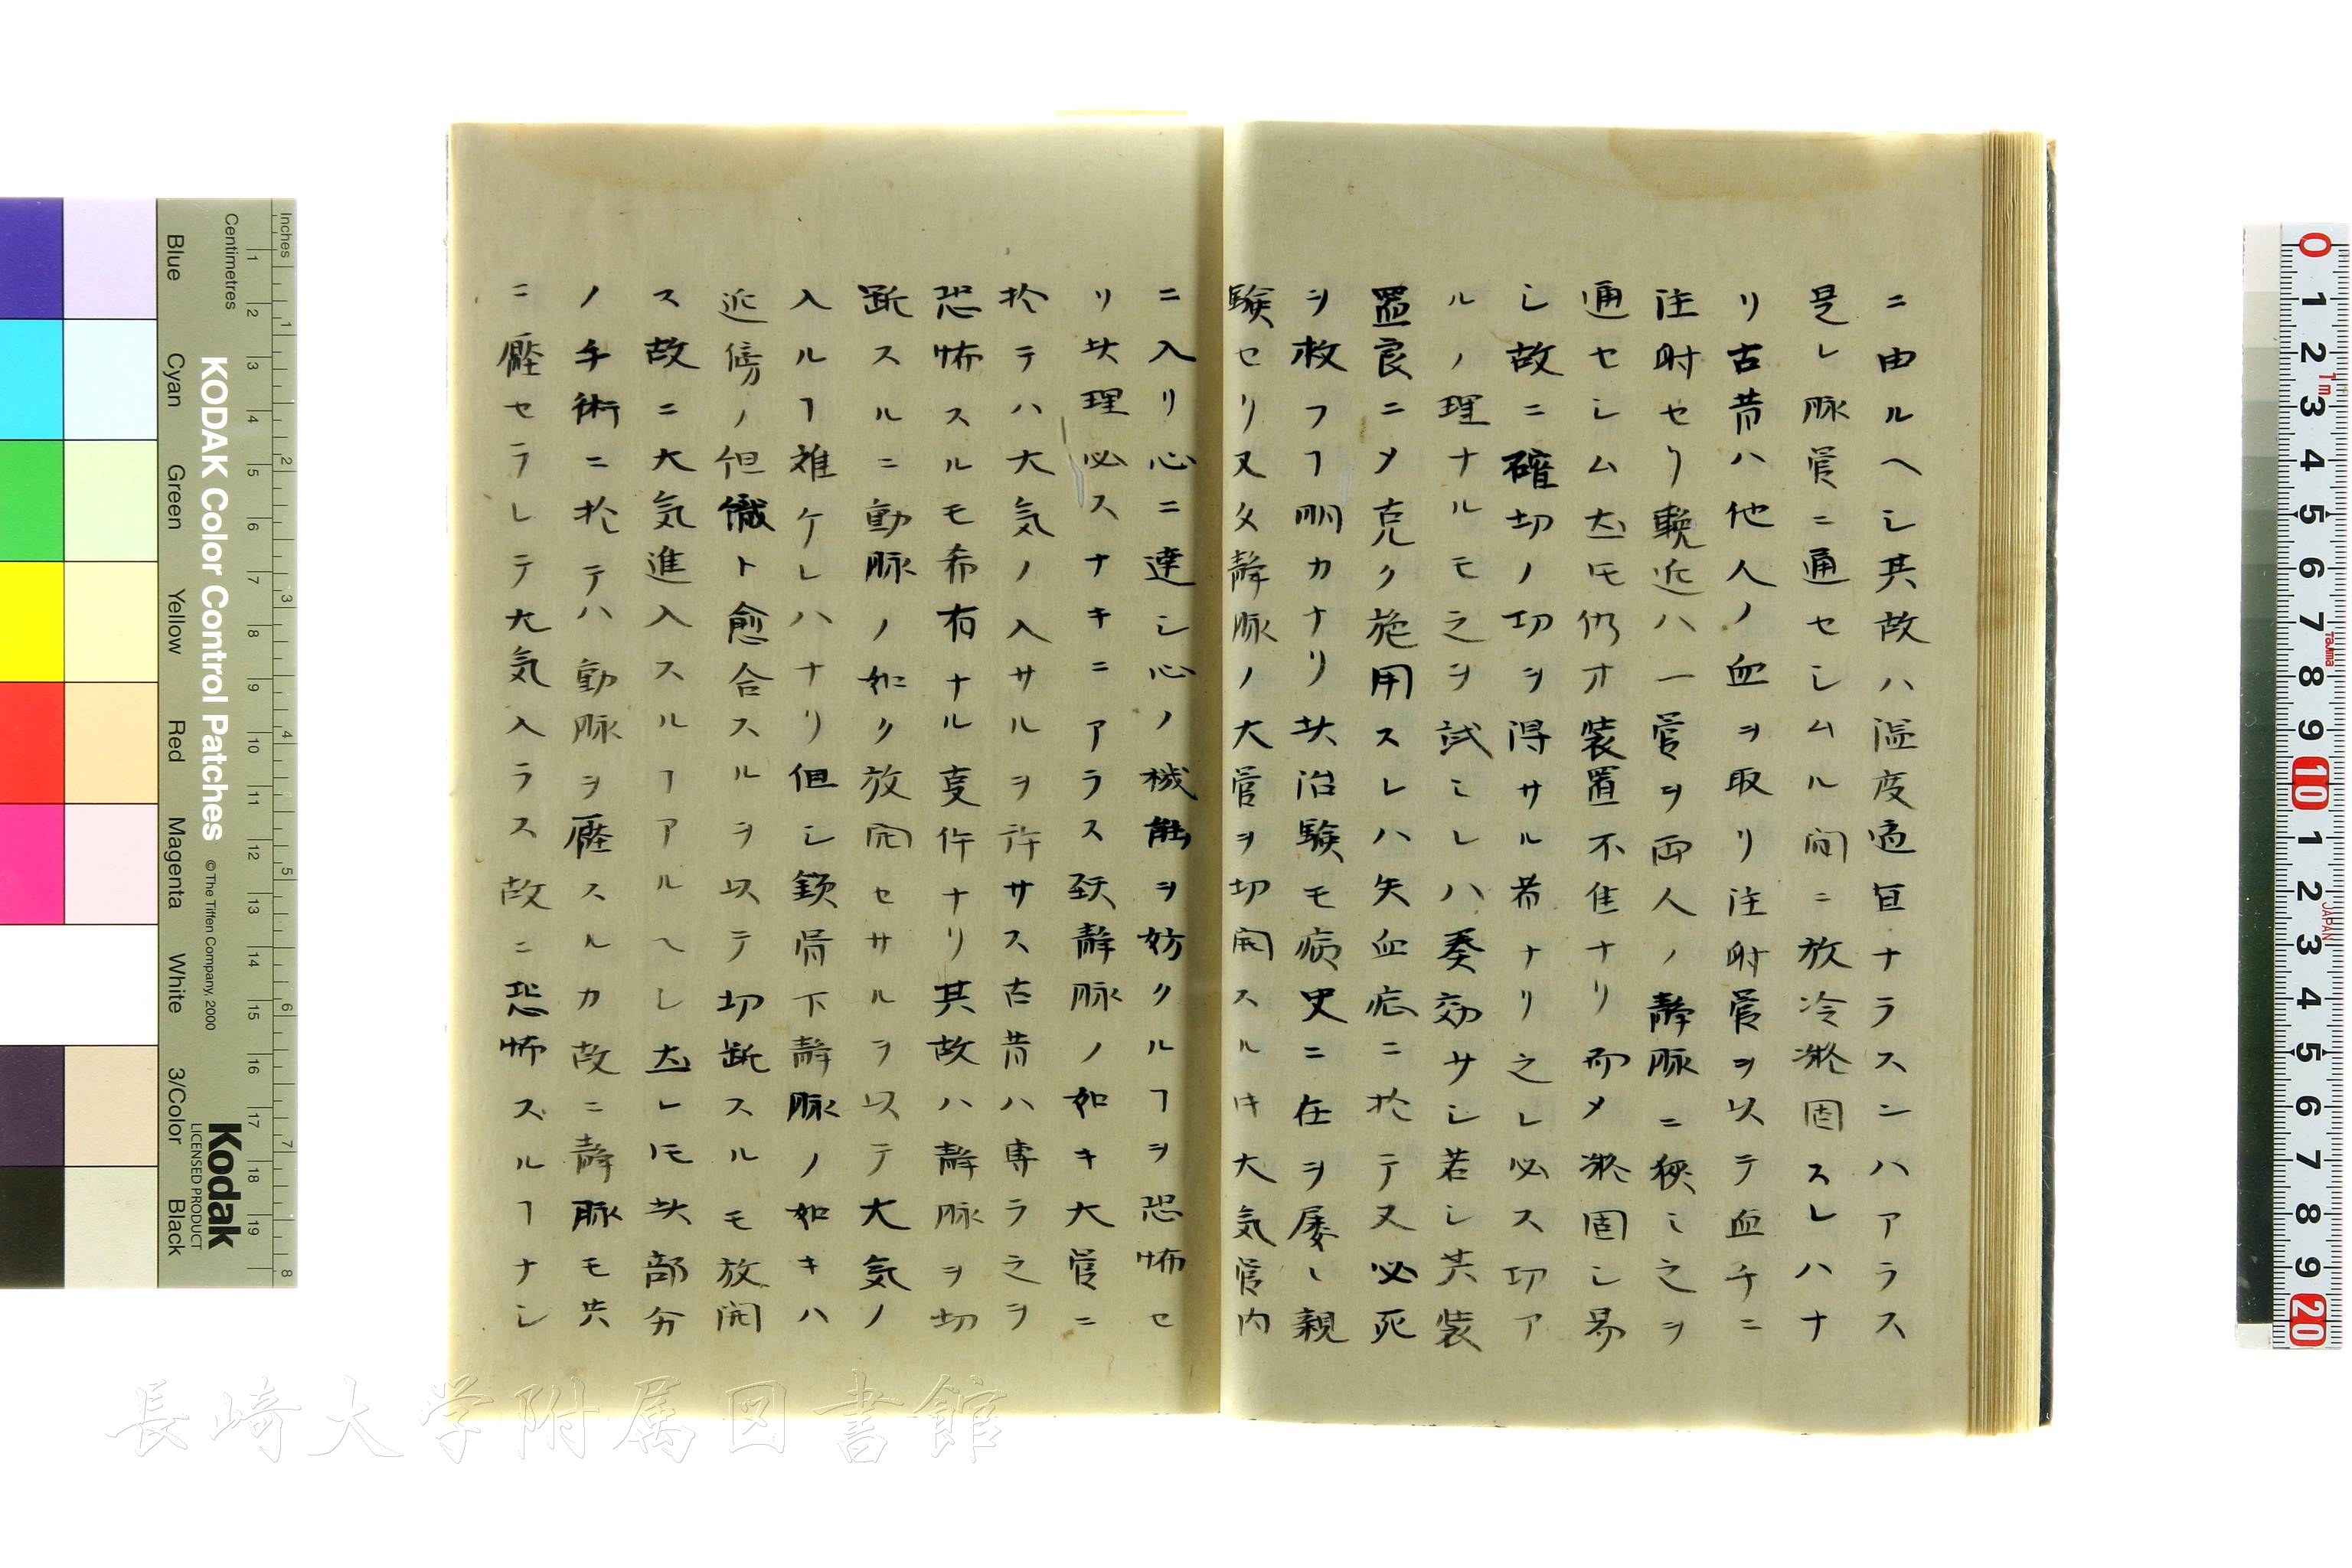 ニ由ルヘシ其故ハ温度適宜ナラスンハアラス
是レ脈管ニ通セシムル間ニ放冷凝固スレハナ
リ古昔ハ他人ノ血ヲ取リ注射管ヲ以テ血チニ
注射セリ輓近ハ一管ヲ両人ノ静脈ニ狹ミ之ヲ
通セシム圡𪜈仍オ装置不隹ナリ而〆凝固シ易
シ故ニ確切ノ切ヲ得サル希ナリ之レ必ス切ア
ルノ理ナルモ之ヲ試ミレハ奏効サシ若シ其装
置良ニ〆克ク施用スレハ失血症ニ於テ又必死
ヲ救フヿ明カナリ其治験モ病史ニ在ヲ屡〻親
験セリ又タ静脈ノ大管ヲ切開スルキ大気管内
ニ入リ心ニ達シ心ノ機能ヲ妨クルヿヲ恐怖セ
リ其理必スナキニアラス頚静脈ノ如キ大管ニ
於テハ大気ノ入サルヲ許サス古昔ハ専ラ之ヲ
恐怖スルモ希有ナル事件ナリ其故ハ静脈ヲ切
断スルニ動脈ノ如ク放開セサルヲ以テ大気ノ
入ルヿ難ケレハナリ但シ鎖骨下静脈ノ如キハ
近傍ノ但織ト愈合スルヲ以テ切断スルモ放開
ス故ニ大気進入スルヿアルヘシ圡レ𪜈其部分
ノ手術ニ於テハ動脈ヲ壓スルカ故ニ静脈モ共
ニ壓セラレテ大気入ラス故ニ恐怖スルヿナシ
Inches
Centimetres
KODAK Color Control Patches
© The Tiffen Company, 2000
Kodak
LICENSED PRODUCT
Blue
Cyan
Green
Yellow
Red
Magenta
White
3/Color
Black
長崎大学附属図書館